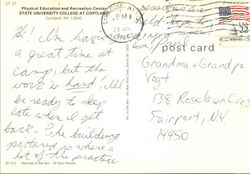 Physical Education and Recreation Center
STATE UNIVERSITY COLLEGE AT CORTLAND
Cortland, NY 13045
Hi! I'm having
a great time at
camp, but the
work is hard. I'll
be ready to sleep
late when I get
back. The building
pictured is where a
lot of the practice
post card
Grandma + Grandpa
Vogt
138 Roselawn Cres
Fairport, N.Y.
14450